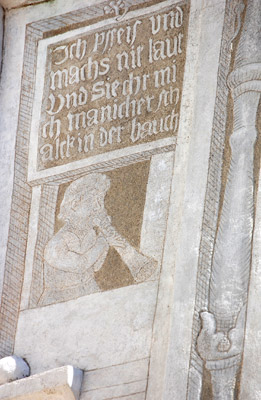 Ich pfeif vnd
machs nit laut
Vnd Siecht mi
ch manicher sch
alck in der bauch